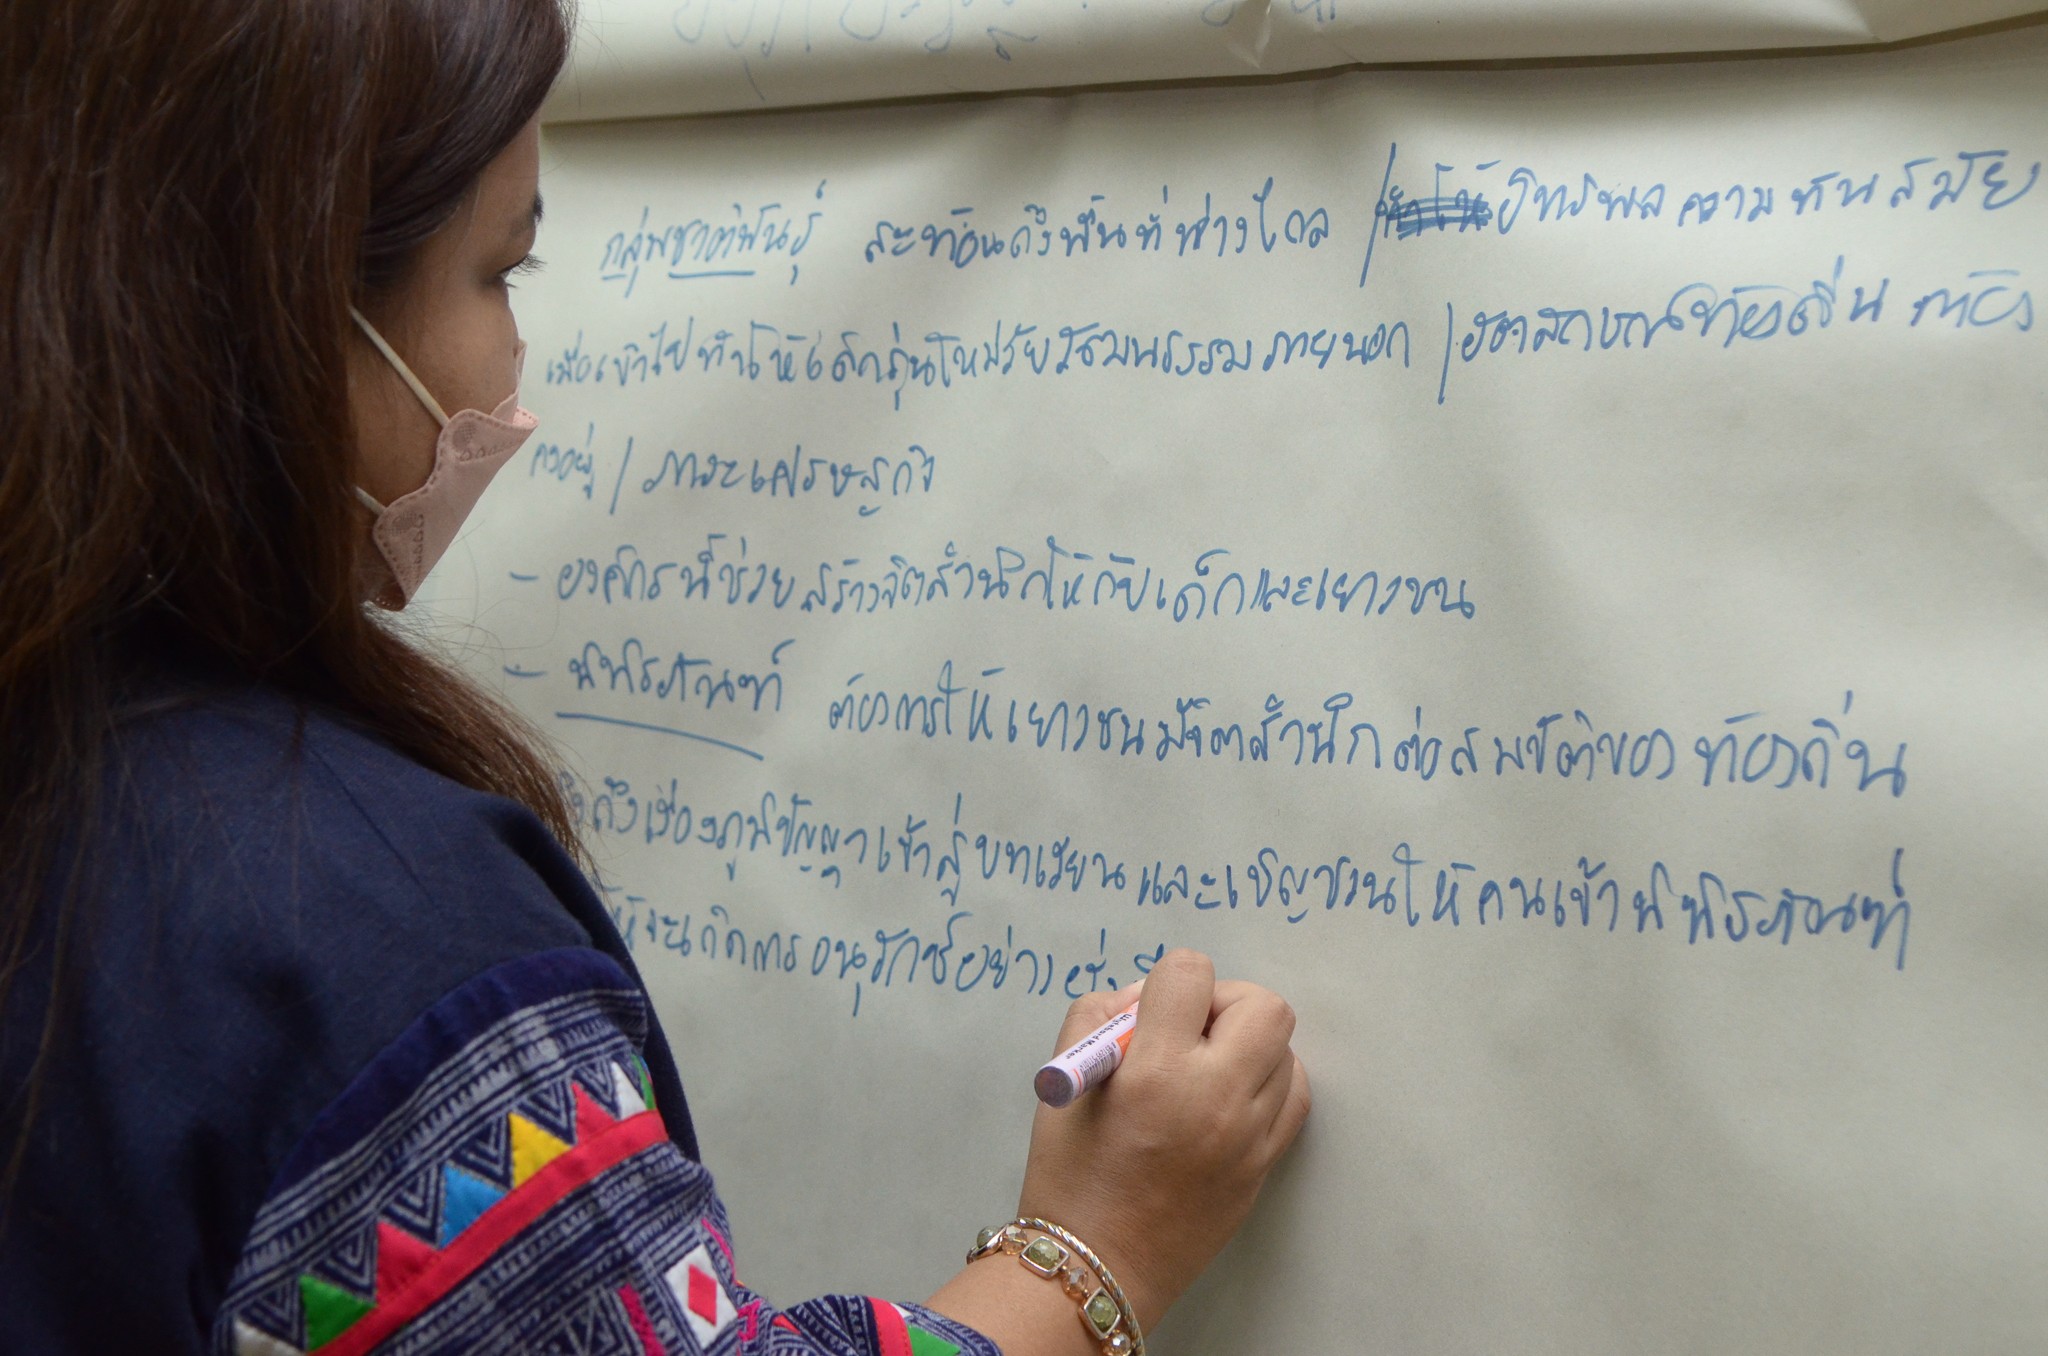 กลุ่มชาติพันธุ์ สะท้อนถึงพื้นที่ห่างไกล / อิทธิพลความทันสมัย
เมื่อเข้าไป ทำให้เด็กรุ่นใหม่รับวัฒนธรรมภายนอก / อัตลักษณ์ท้องถิ่น
คงอยู่ / ภาวะเศรษฐกิจ
- องค์กรนี้ช่วยสร้างจิตสำนึกให้กับเด็กและเยาวชน
- พิพิธภัณฑ์ ต้องการให้เยาวชนมีจิตสำนึกต่อสมบัติของท้องถิ่น
ถึงเรื่องภูมิปัญญาเข้าสู่บทเรียน และเชิญชวนให้คนเข้าพิพิธภัณฑ์
จะเกิดการอนุรักษ์อย่าง
Whiteboard Marker